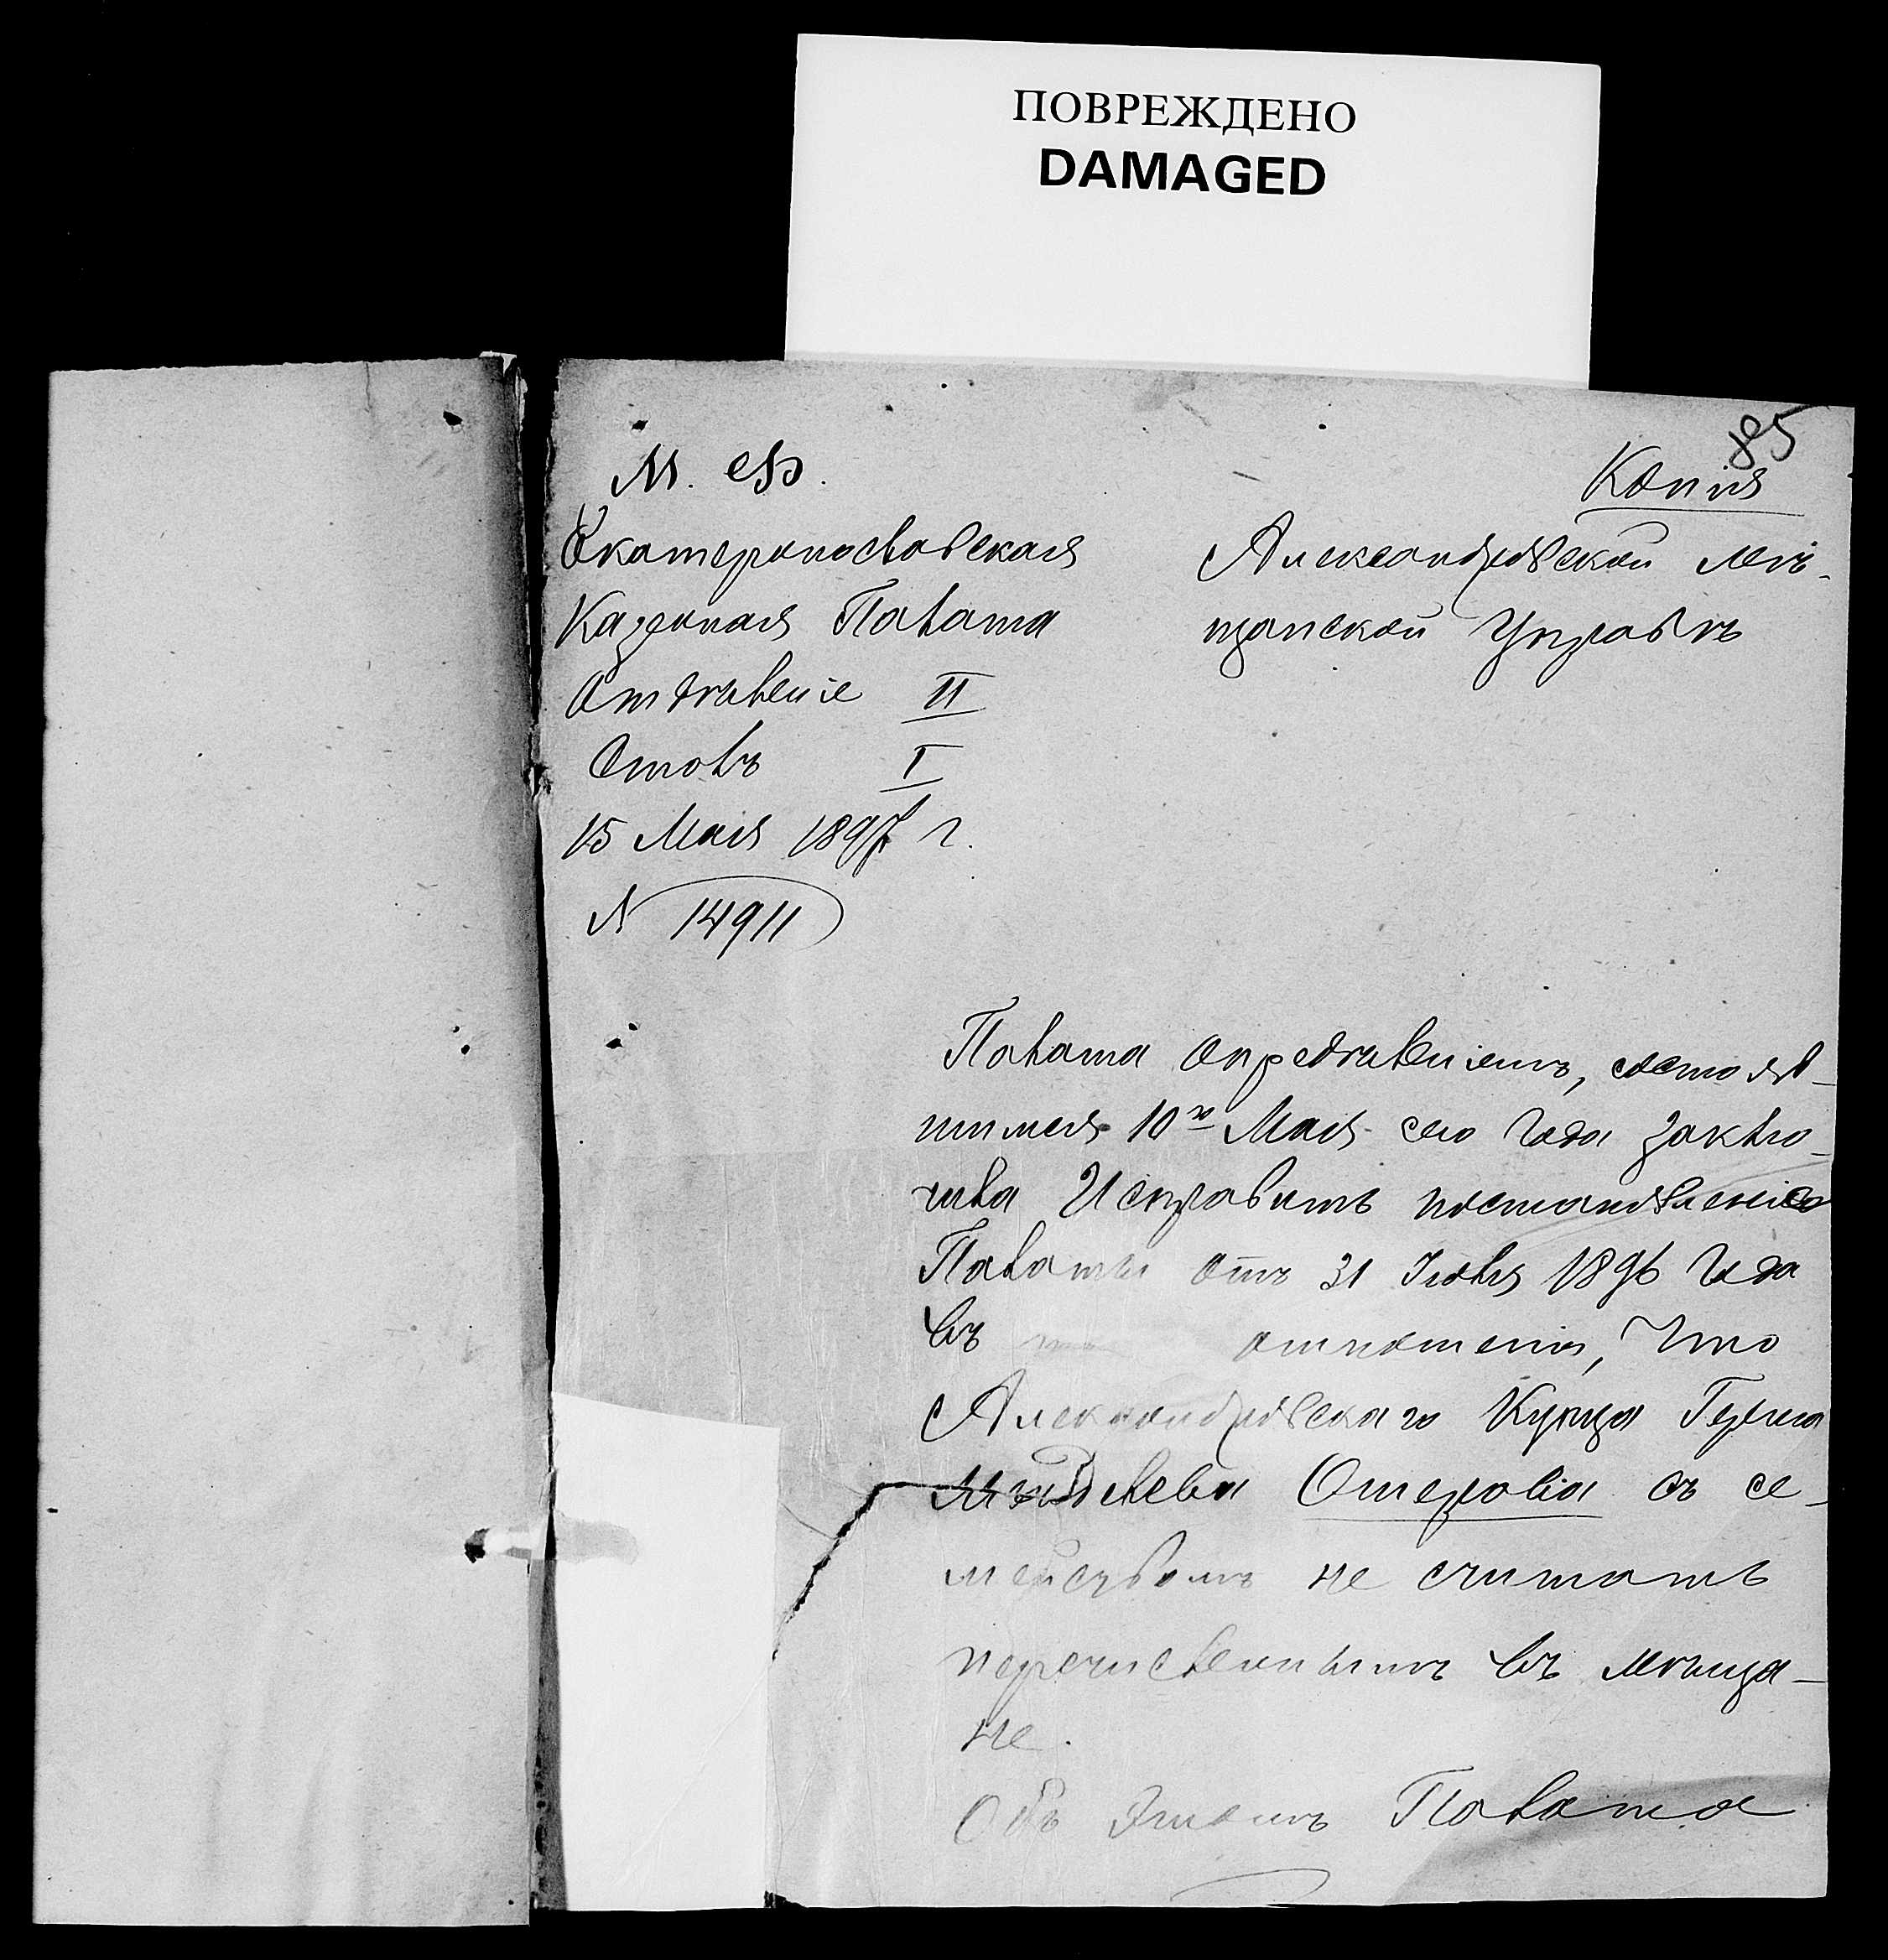 ПОВРЕЖДЕНО
DAMAGED
85
Копія
М. Ф.
Екатеринославская
Казенная Палата
Отдѣленіе II
Столъ I
15 Мая 1897 г.
№ 14911
Александровской мѣ-
щанской Управѣ
Палата опредѣленіемъ, состояв-
шимся 10го Мая сего года заклю-
чила Исправить постановленіе
Палаты отъ 31 Іюля 1896 года
въ отношеніи, что
Александровскаго Купца Герша
Менделева Отерова съ се-
мействомъ не считать
перечисленнымъ въ мѣща-
не.
Объ этомъ Палата